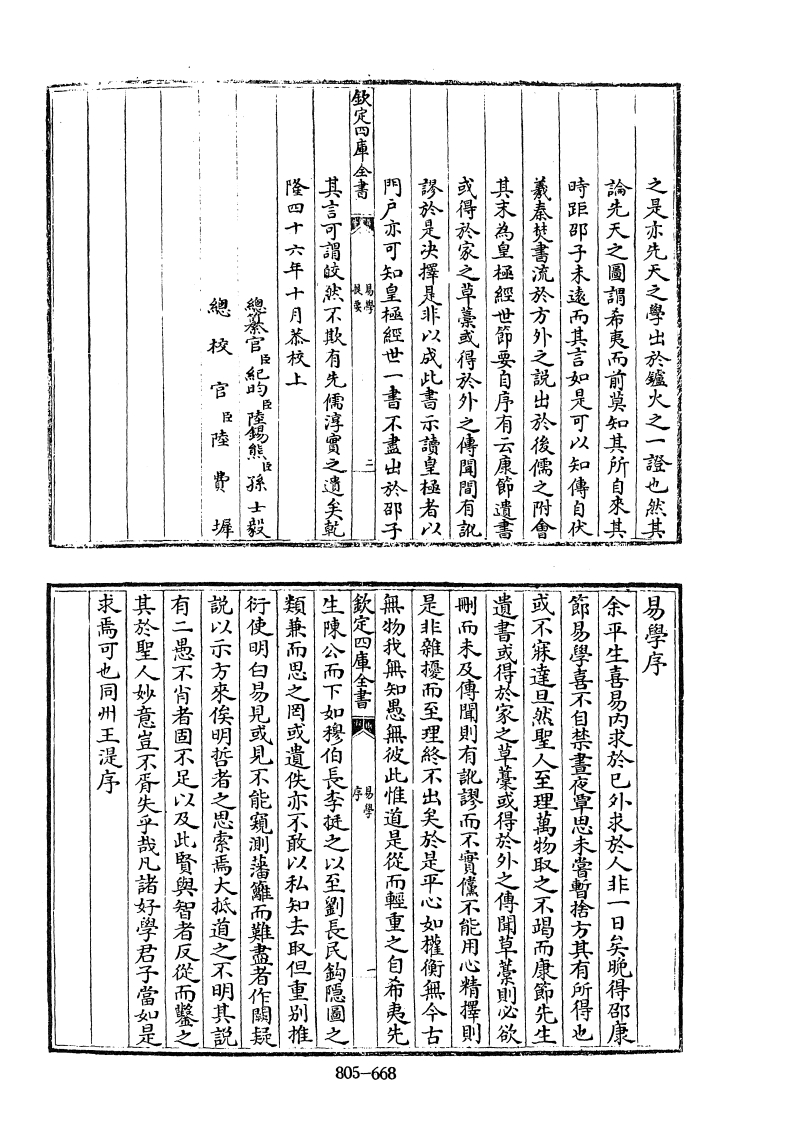 之是亦先天之學出於鑪火之一證也然其
論先天之圖謂希夷而前莫知其所自來其
時距邵子未遠而其言如是可以知傳自伏
羲秦焚書流於方外之説出於後儒之附會
其末為皇極經世節要自序有云康節遺書
或得於家之草藁或得於外之傳聞間有訛
謬於是决擇是非以成此書示讀皇極者以
門户亦可知皇極經世一書不盡出於邵子
欽定四庫全書
易學
提要
二
其言可謂皎然不欺有先儒淳實之遺矣乾
隆四十六年十月恭校上
總纂官臣紀昀臣陸錫熊臣孫士毅
總校官臣陸費墀
易學序
余平生喜易内求於已外求於人非一日矣晚得邵康
節易學喜不自禁晝夜覃思未嘗暫捨方其有所得也
或不寐達旦然聖人至理萬物取之不竭而康節先生
遺書或得於家之草藁或得於外之傳聞草藁則必欲
刪而未及傳聞則有訛謬而不實儻不能用心精擇則
是非雜擾而至理終不出矣於是平心如權衡無今古
無物我無知愚無彼此惟道是從而輕重之自希夷先
欽定四庫全書
易學
序
一
生陳公而下如穆伯長李挺之以至劉長民鈎隱圖之
類兼而思之罔或遺佚亦不敢以私知去取但重别推
衍使明白易見或見不能窺測藩籬而難盡者作闕疑
説以示方來俟明哲者之思索焉大抵道之不明其説
有二愚不肖者固不足以及此賢與智者反從而鑿之
其於聖人妙意豈不胥失乎哉凡諸好學君子當如是
求焉可也同州王湜序
805-668